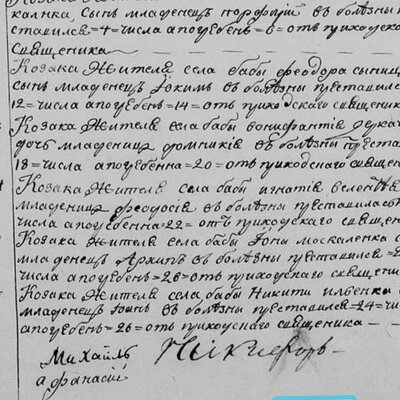 сынъ младенецъ порфирий въ болѣзны
ставился =4= числа а погребенъ =6= отъ приходска
священика
Козака жителя села бабы феодора сынъ
сынъ младенецъ Іокимъ въ болѣзны преставился
12= числа апогребенъ =14= отъ приходскаго священика
Козака жителя села бабы вонифантія
дочъ младеница домникія въ болѣзны преста
18= числа апогребенна =20= отъ приходскаго священи
Козака Жителя села бабы игнатія
младеница феодосія въ болѣзны преставиласъ
числа апогребенна =22= отъ приходскаго священ
Козака жителя села бабы Іона москаленка с
младенецъ Архипъ въ болѣзны преставился =2
числа апогребенъ =26= отъ приходскаго священи
Козака Жителя села бабы Никити илѣенка
младенецъ въ болѣзны преставился =24= чис
апогребенъ =26= отъ приходскаго священика
Михаилъ Никифоръ
афанасій